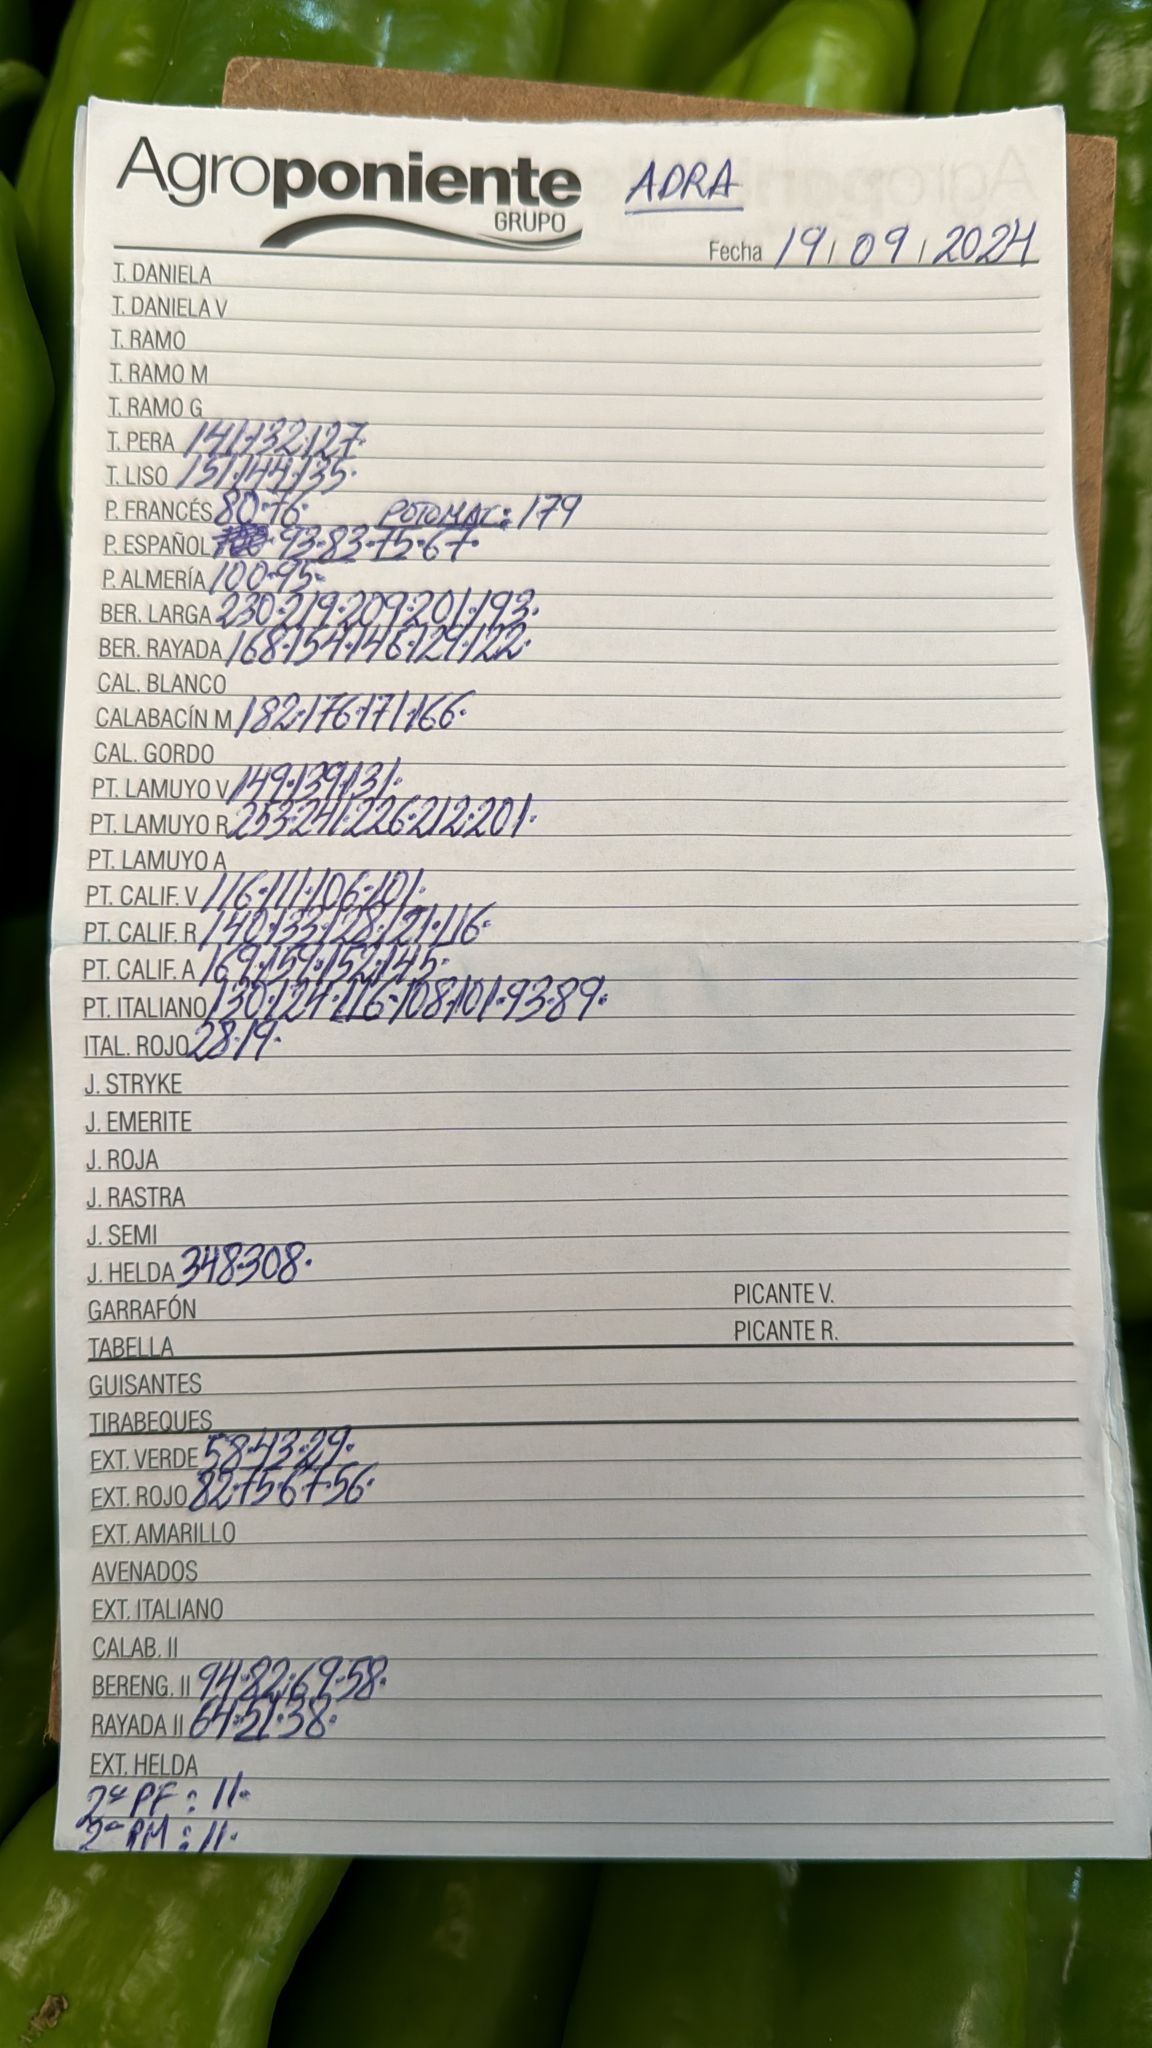 Agroponiente ADRA
GRUPO
Fecha 19/09/2024
T. DANIELA
T. DANIELA V
T. RAMO
T. RAMO M
T. RAMO G
T. PERA 141·132·127·
T. LISO 151·144·135·
P. FRANCÉS 80·76· POTOMAC: 179
P. ESPAÑOL 93·83·75·67·
P. ALMERÍA 100·95·
BER. LARGA 230·219·209·201·193·
BER. RAYADA 168·154·146·129·122·
CAL. BLANCO
CALABACÍN M 182·176·171·166·
CAL. GORDO
PT. LAMUYO V 149·139·131·
PT. LAMUYO R 253·241·226·212·201·
PT. LAMUYO A
PT. CALIF. V 116·111·106·101·
PT. CALIF. R 140·133·128·121·116·
PT. CALIF. A 169·159·152·145·
PT. ITALIANO 130·124·116·108·101·93·89·
ITAL. ROJO 28·19·
J. STRYKE
J. EMERITE
J. ROJA
J. RASTRA
J. SEMI
J. HELDA 348·308·
GARRAFÓN PICANTE V.
TABELLA PICANTE R.
GUISANTES
TIRABEQUES
EXT. VERDE 58·43·29·
EXT. ROJO 82·75·67·56·
EXT. AMARILLO
AVENADOS
EXT. ITALIANO
CALAB. II
BERENG. II 94·82·69·58·
RAYADA II 64·51·38·
EXT. HELDA
2ª PF: 11·
2ª RM: 11·